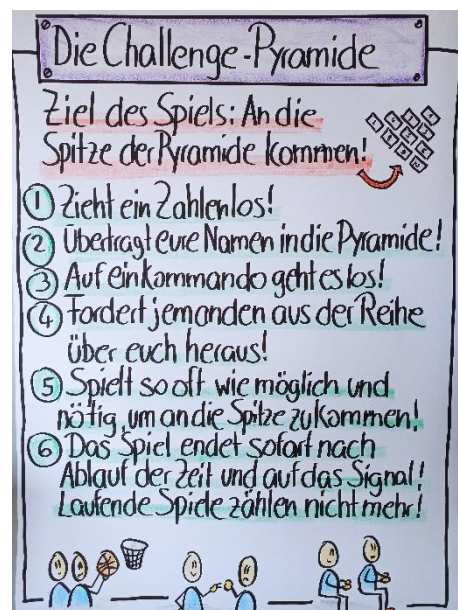 Die Challenge-Pyramide
Ziel des Spiels: An die
Spitze der Pyramide kommen!
1 Zieht ein Zahlenlos!
2 Übertragt eure Namen in die Pyramide!
3 Auf ein Kommando geht es los!
4 Fordert jemanden aus der Reihe
über euch heraus!
5 Spielt so oft wie möglich und
nötig, um an die Spitze zu kommen!
6 Das Spiel endet sofort nach
Ablauf der Zeit und auf das Signal!
Laufende Spiele zählen nicht mehr!